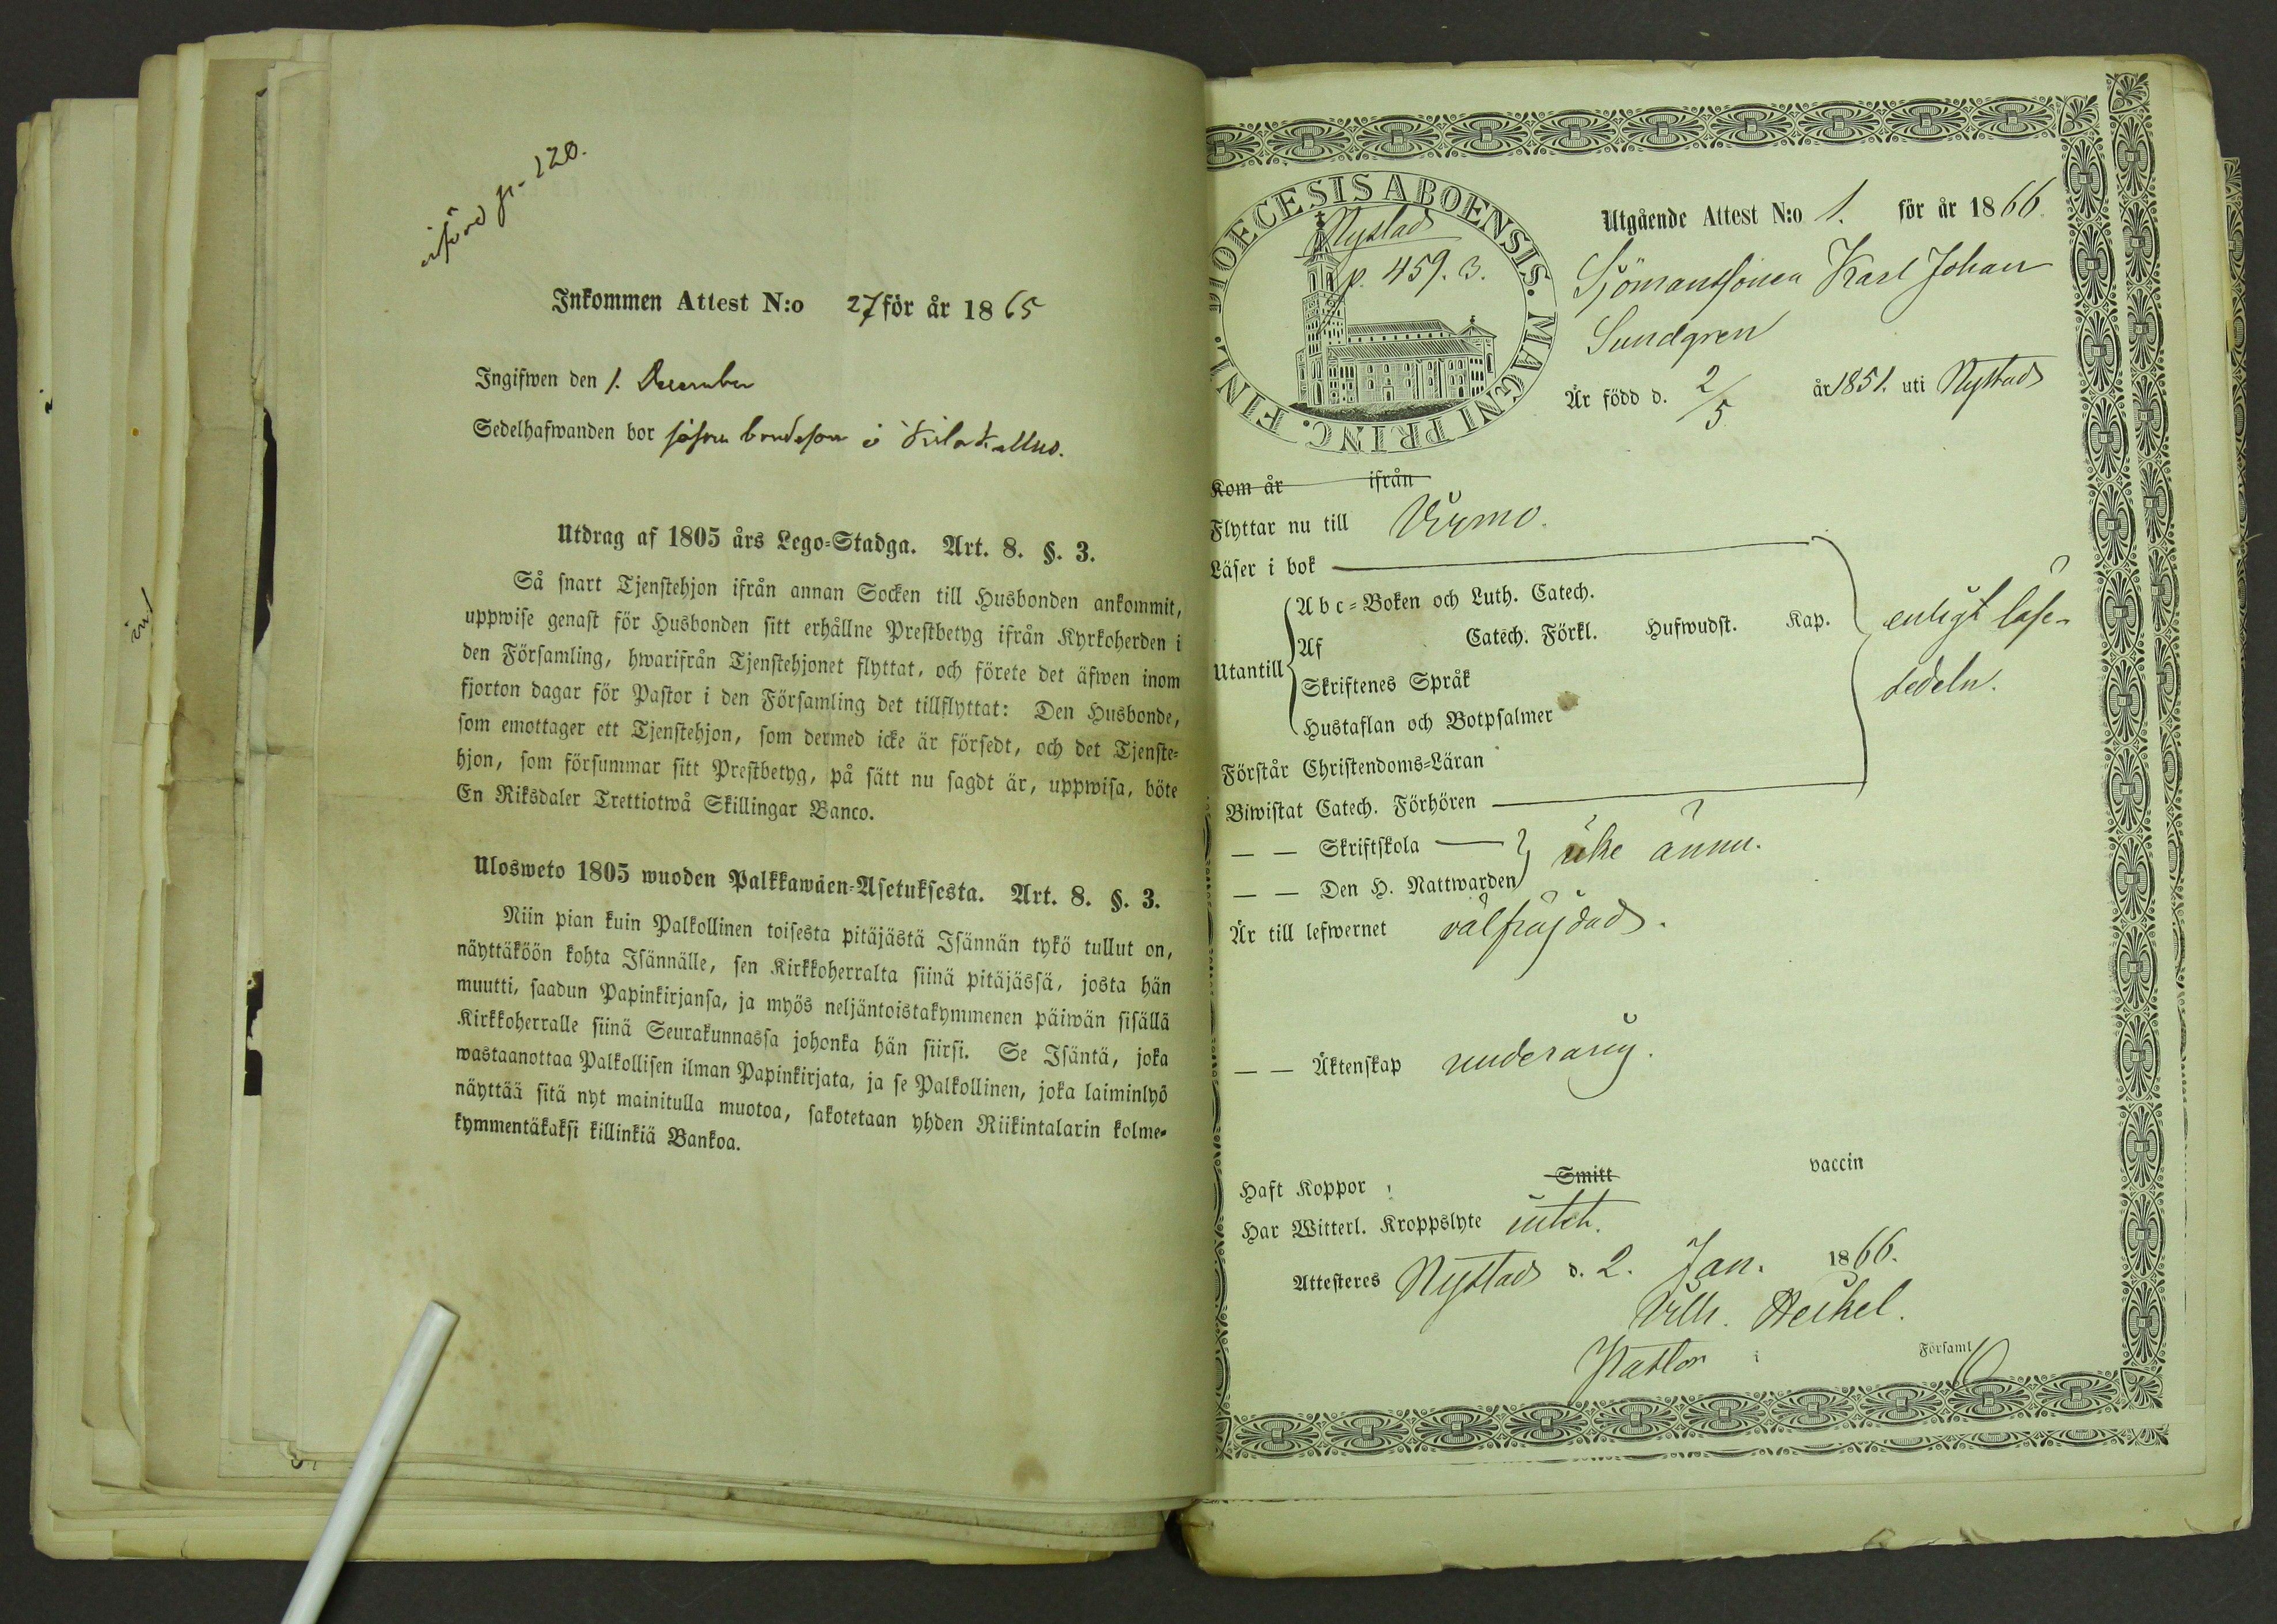 införd p. 120.
Inkommen Attest N:o 27 för år 1865
Ingifwen den 1. December
Sedelhafwanden bor såsom bondeson i
Utdrag af 1805 års Lego-Stadga. Art. 8. §. 3.
Så snart Tjenstehjon ifrån annan Socken till Husbonden ankommit,
uppwise genast för Husbonden sitt erhållne Prestbetyg ifrån Kyrkoherden i
den Församling, hwarifrån Tjenstehjonet flyttat, och förete det äfwen inom
fjorton dagar för Pastor i den Församling det tillflyttat: Den Husbonde,
som emottager ett Tjenstehjon, som dermed icke är försedt, och det Tjenste-
hjon, som försummar sitt Prestbetyg, på sätt nu sagdt är, uppwisa, böte
En Riksdaler Trettiotwå Skillingar Banco.
Ulosweto 1805 wuoden Palkkawäen-Asetuksesta. Art. 8. §. 3.
Niin pian kuin Palkollinen toisesta pitäjästä Isännän tykö tullut on,
näyttäköön kohta Isännälle, sen Kirkkoherralta siinä pitäjässä, josta hän
muutti, saadun Papinkirjansa, ja myös neljäntoistakymmenen päiwän sisällä
Kirkkoherralle siinä Seurakunnassa johonka hän siirsi. Se Isäntä, joka
wastaanottaa Palkollisen ilman Papinkirjata, ja se Palkollinen, joka laiminlyö
näyttää sitä nyt mainitulla muotoa, sakotetaan yhden Riikintalarin kolme-
kymmentäkaksi killinkiä Bankoa.
DIOECESIS ABOENSIS. MAGNI PRINC. FINL.
Nystad
p. 459. 3.
Utgående Attest N:o 1. för år 1866.
Sjömanssonen Karl Johan
Sundgren
Är född d. 2/5 år 1851. uti Nystad
Kom år ifrån
Flyttar nu till Virmo.
Läser i bok
Utantill
Abc-Boken och Luth. Catech.
Af Catech. Förkl. Hufwudst. Kap.
Skriftenes Språk
Hustaflan och Botpsalmer
enligt läse-
sedeln.
Förstår Christendoms-Läran
Biwistat Catech. Förhören
— — Skriftskola
— — Den H. Nattwarden
icke ännu.
Är till lefwernet välfräjdad.
— — Äktenskap underårig.
Haft Koppor, Smitt vaccin
Har Witterl. Kroppslyte intet.
Attesteres Nystad d. 2. Jan. 1866.
Vilh. Heikel.
Pastor i Församl